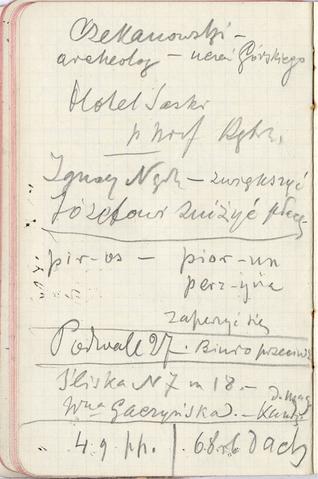 Czekanowski –
archeolog – uczeń Górskiego
Hotel Saski
p. prof.
Ignacy – zwiększyć
Józefowi zniżyć płacę
pir-os – pior-un
perz-yna
zaperzyć się
Podwale 27. Biuro
Śliska N 7 m 18. –
Wna Gaczyńska. –
4.9 pp. 68 rb Dach